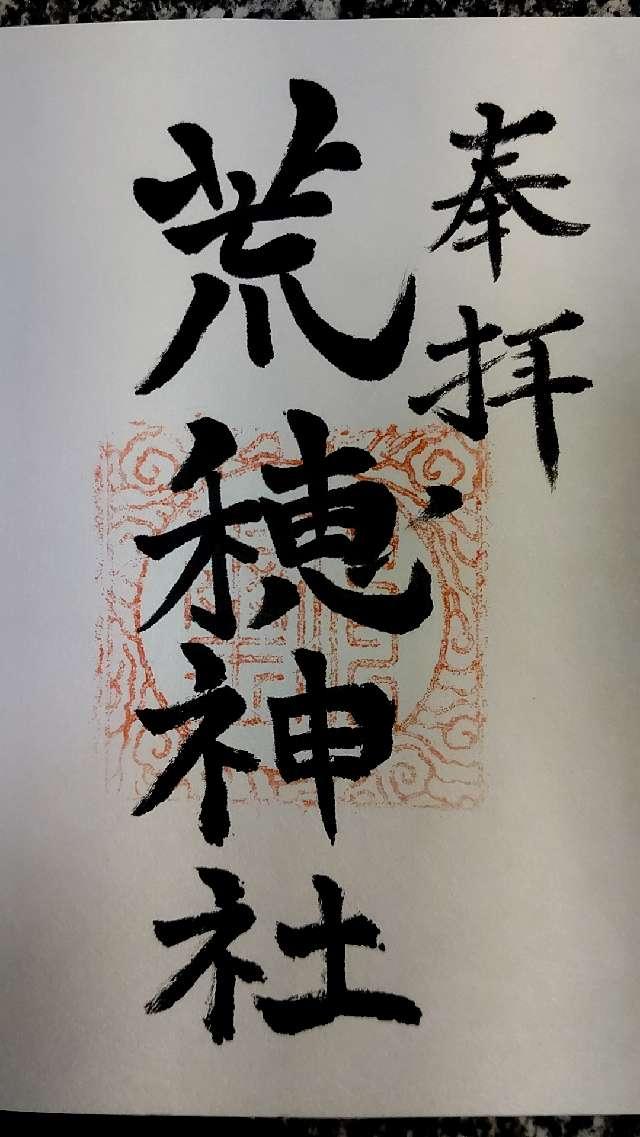 奉拝
荒穂神社